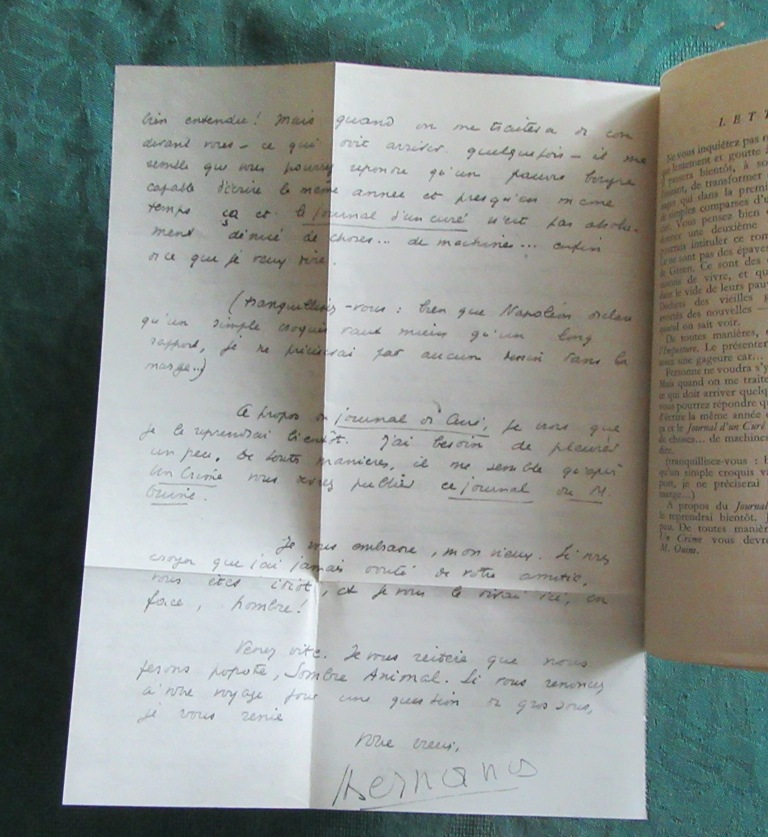 bien entendu! Mais quand on me traitera de con
devant vous – ce qui doit arriver quelquefois – il me
semble que vous pourrez repondre qu'un pauvre bougre
capable d'écrire la même année et presqu'en même
temps ça et le Journal d'un curé n'est pas absolu-
ment dénué de choses... de machines... enfin
de ce que je veux dire.
(tranquillisez-vous : bien que Napoléon déclare
qu'un simple croquis vaut mieux qu'un long
rapport, je ne préciserai par aucun dessin dans la
marge...)
A propos du journal de Curé, je crois que
je le reprendrai bientôt. J'ai besoin de pleurer
un peu. De toutes manières, il me semble qu'après
Un Crime vous devrez publier ce journal ou M.
Ouine.
Je vous embrasse, mon vieux. Si vous
croyez que j'ai jamais douté de votre amitié,
vous êtes idiot, et je vous le dirai ici, en
face, hombre!
Venez vite. Je vous réitère que nous
ferons popote, Sombre Animal. Si vous renoncez
à votre voyage pour une question de gros sous,
je vous renie
Votre vieux,
Bernanos
LETT
Ne vous inquiétez pas
lentement et goutte à
passera bientôt, à so
de transformer
qui dans la premi
simples comparses d'u
Vous pensez bien
une deuxième
pourrait intituler ce rom
ne sont pas des épaves
de Green. Ce sont des
de vivre, et qu
dans le vide de leurs pau
des vieilles
des nouvelles —
quand on sait voir.
De toutes manières,
l'Imposture. Le présenter
une gageure car...
Personne ne voudra s'y
Mais quand on me traite
ce qui doit arriver quelq
vous pourrez répondre qu
d'écrire la même année
ça et le Journal d'un Curé
de choses... de machines
dire.
(tranquillisez-vous : b
qu'un simple croquis va
port, je ne préciserai
marge...)
A propos du Journal
le reprendrai bientôt. J
peu. De toutes manièr
Un Crime vous devr
M. Ouine.